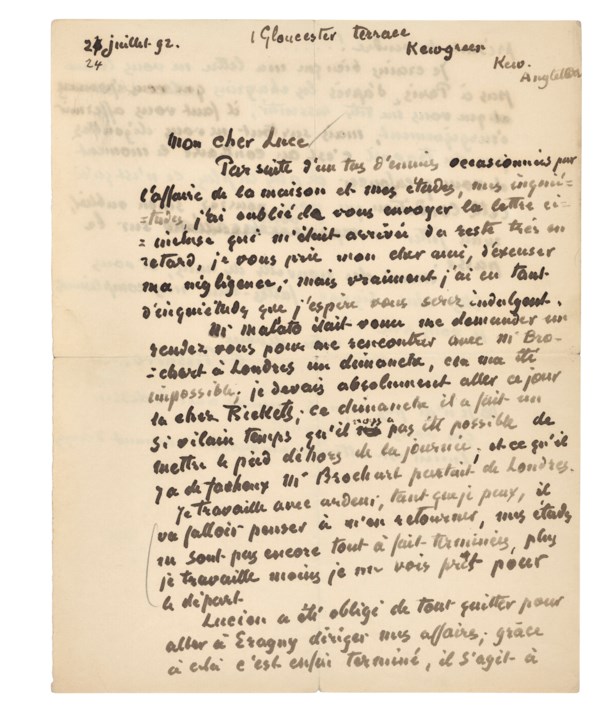 24 juillet 92.
24
1 Gloucester terrace
Kewgreen
Kew.
Angleterre
Mon cher Luce
Par suite d'un tas d'ennuis occasionnés par
l'affaire de la maison et mes études, mes inquié-
-tudes, j'ai oublié de vous envoyer la lettre ci-
-incluse qui m'était arrivée du reste très en
retard, je vous prie mon cher ami, d'excuser
ma négligence; mais vraiment j'ai eu tant
d'inquiétude que j'espère vous serez indulgent.
Mr Malato était venu me demander un
rendez vous pour me rencontrer avec Mr Bro-
-chart à Londres un dimanche, cela m'a été
impossible, je devais absolument aller ce jour
là chez Rickets; ce dimanche il a fait un
si vilain temps qu'il nous a pas été possible de
mettre le pied dehors de la journée, et ce qu'il
y a de facheux Mr Brochart partait de Londres.
Je travaille avec ardeur, tant que je peux, il
va falloir penser à m'en retourner, mes études
ne sont pas encore tout à fait terminées, plus
je travaille moins je me vois prêt pour
le départ.
Lucien a été obligé de tout quitter pour
aller à Eragny diriger mes affaires; grâce
à cela c'est enfin terminé, il s'agit à